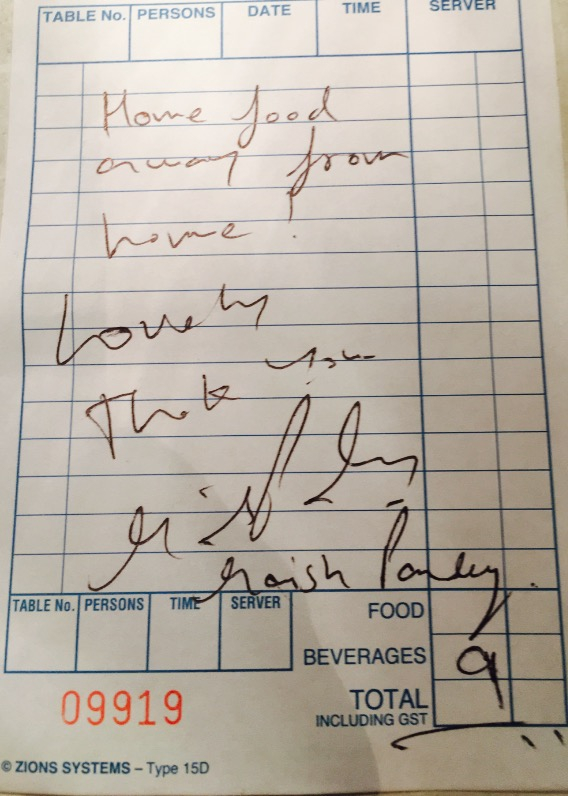 TABLE No. PERSONS DATE TIME SERVER
Home food
away from
home!
Lovely
Thank you
TABLE No. PERSONS TIME SERVER
FOOD
BEVERAGES
TOTAL
INCLUDING GST
09919
© ZIONS SYSTEMS – Type 15D